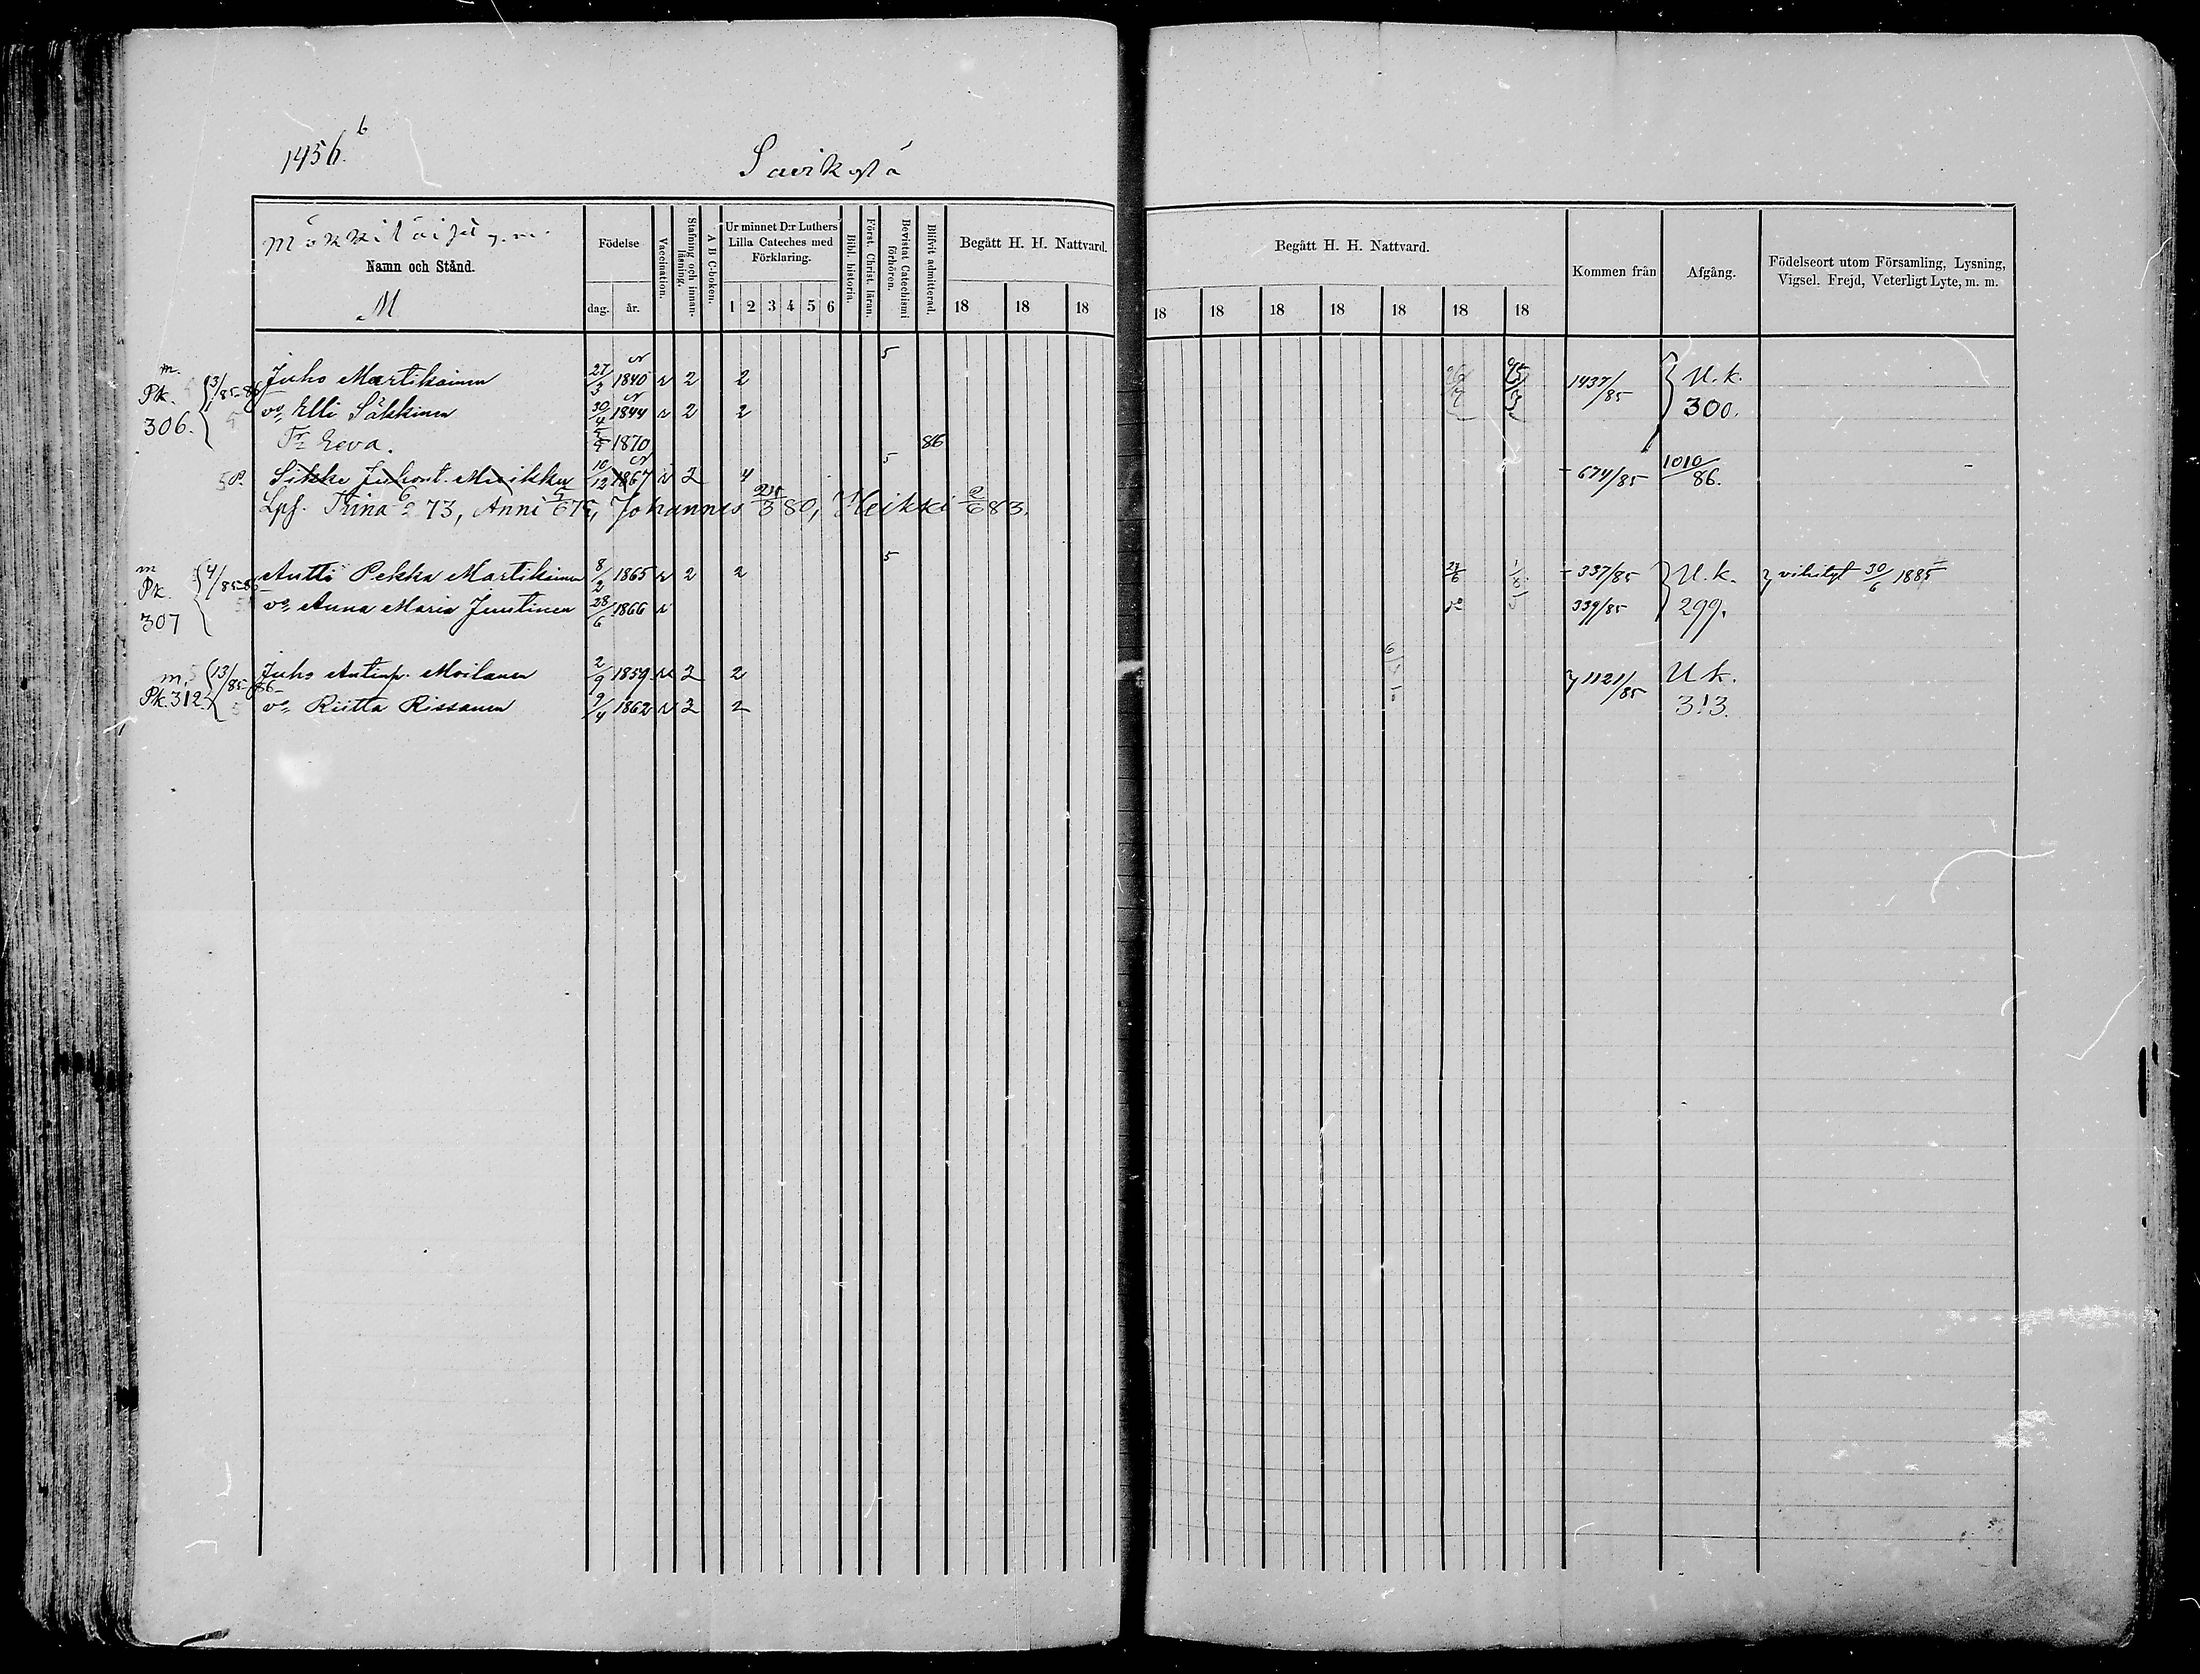 1456.b
Savikylä
Mökkiläiset y.m.
Namn och Stånd.
M
Födelse
dag. år.
Vaccination.
Stafning och innanläsning.
A B C-boken.
Ur minnet D:r Luthers Lilla Cateches med Förklaring.
1 2 3 4 5 6
Bibl. historia.
Först. Christ. läran.
Bevistat Catechismi förhören.
Blifvit admitterad.
Begått H. H. Nattvard.
18 18 18
Begått H. H. Nattvard.
18 18 18 18 18 18 18
Kommen från
Afgång.
Födelseort utom Församling, Lysning, Vigsel. Frejd, Veterligt Lyte, m. m.
m. Pk. 306. 13/85-86 Juho Martikainen 27/3 1840 v 2 2 5 1437/85 U.k. 300.
vo Elli Säkkinen 30/4 1844 v 2 2
Tr Eeva. 1870 86
5 P. Juhont. 10/12 1867 v 2 4 5 674/85 1010/86.
Lps. Triina 73, Anni 75, Johannes 80, Heikki 2/6 83.
m Pk. 307 4/85-86 Antti Pekka Martikainen 8/2 1865 v 2 2 5 337/85 U.k. 299. vihityt 30/6 1885
vo Anna Maria Juntinen 28/6 1866 v 339/85
m. Pk. 312. 13/85-86 Juho Antinp. Moilanen 2/9 1859 v 2 2 1121/85 U.k. 313.
vo Riitta Rissanen 9/4 1862 v 2 2